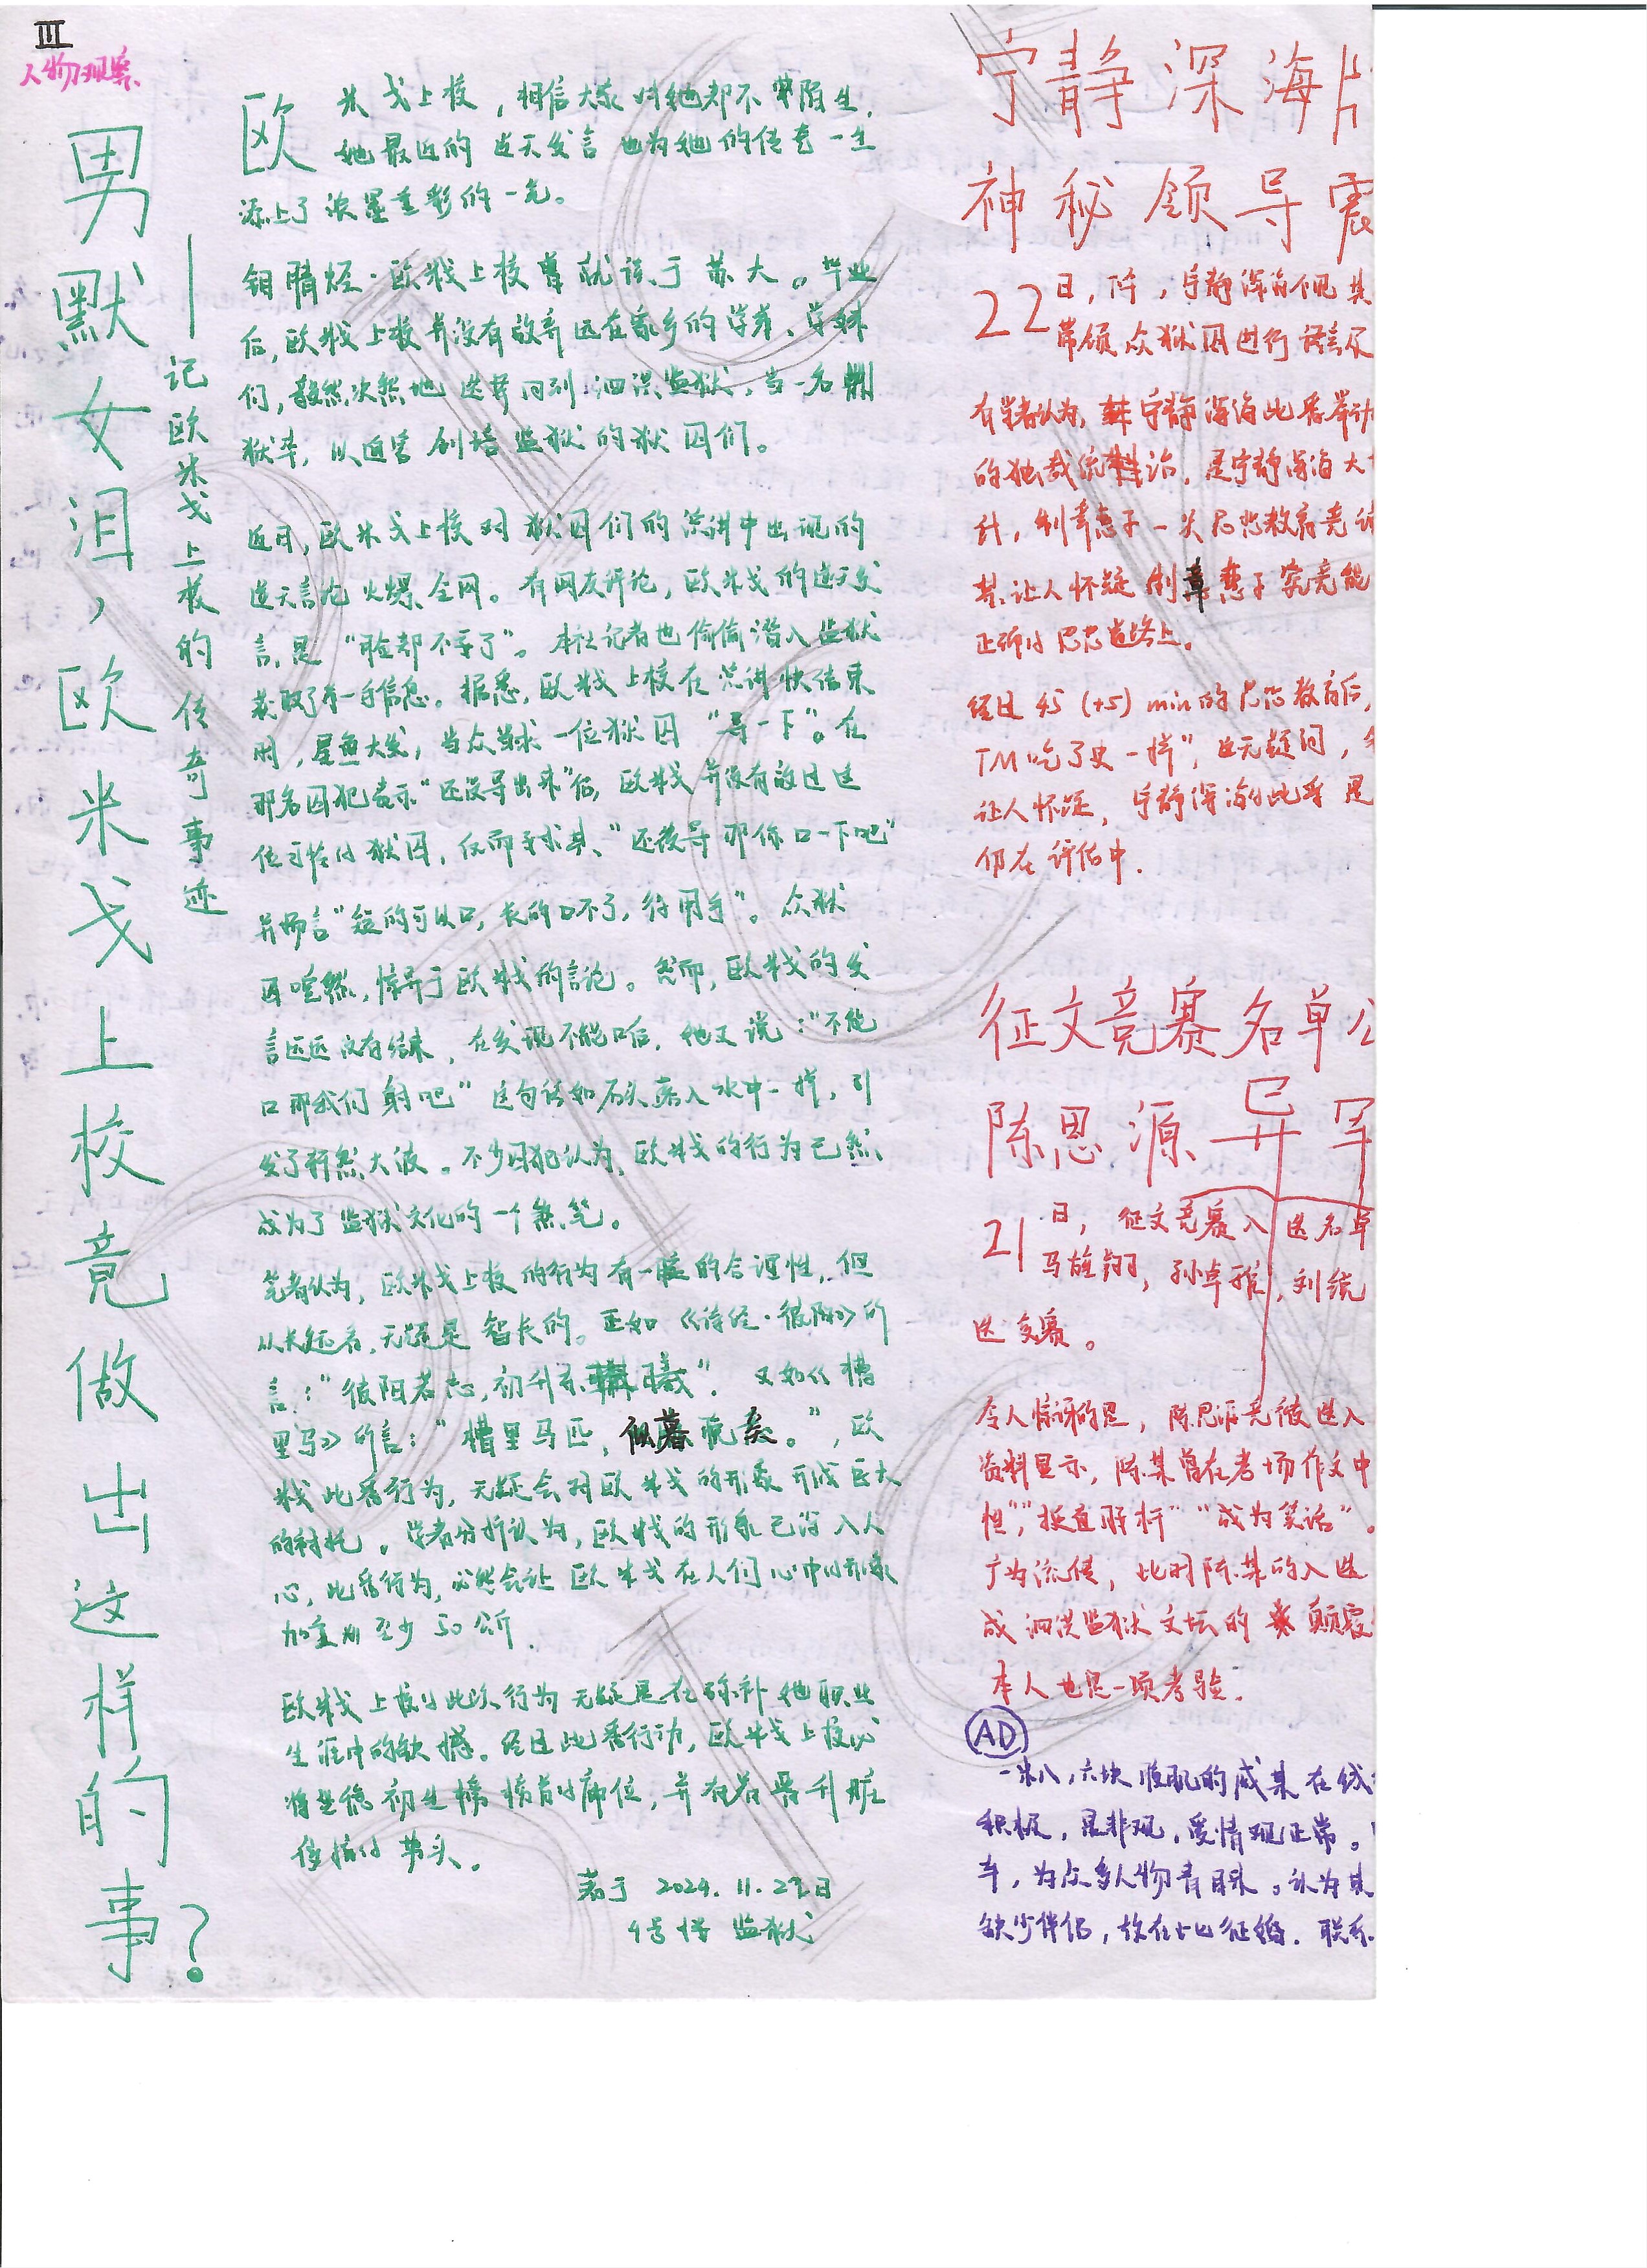 III
人物观察
男默女泪，欧米戈上校竟做出这样的事？
——记欧米戈上校的传奇事迹
欧米戈上校，相信大家对她都不陌生，
她最近的逆天发言也为她的传奇一生
添上了浓墨重彩的一笔。
欧米戈上校曾就读于苏大。毕业
后，欧米戈上校并没有放弃远在家乡的学弟、学妹
们，毅然决然地选择回到泗洪监狱，当一名
狱卒，以迫害创培监狱的狱囚们。
近日，欧米戈上校对狱囚们的演讲中出现的
逆天言论火爆全网。有网友评论，欧米戈的逆天发
言，是“脸都不要了”。本社记者也偷偷潜入监狱
获取了第一手信息。据悉，欧米戈上校在演讲快结束
时，星鱼大发，当众要求一位狱囚“导一下”。在
那名囚犯表示“还没导出来”后，欧米戈并没有放过这
位可怜的狱囚，反而要求其“还没导那你口一下吧”
并扬言“短的可以口，长的口不了，得用手”。众狱
囚哗然，惊异于欧米戈的言论。然而，欧米戈的发
言远远没有结束，在发现不能口后，她又说：“不能
口那我们射吧”这句话如石头落入水中一样，引
发了轩然大波。不少囚犯认为，欧米戈的行为已然
成为了监狱文化的一个煞笔。
笔者认为，欧米戈上校的行为有一腚的合理性，但
从长远看，无疑是智长的。正如《诗经·彼阳》所
言：“彼阳者忐，初升东曦”。又如《槽
里马》所言：“槽里马匹，似暮死矣。”，欧
米戈此番行为，无疑会对欧米戈的形象形成巨大
的衬托。学者分析认为，欧米戈的形象已深入人
心，此番行为，必然会让欧米戈在人们心中的形象
加重为至少50公斤．
欧米戈上校的此次行为无疑是在弥补她职业
生涯中的缺憾。经过此番行动，欧米戈上校必
将坐稳初生榜榜首的席位，并有着晋升脏
的势头。
著于 2024.11.27日
监狱
宁静深海
神秘领导震
22日，宁静深海
带领众狱囚进行语言
有学者认为，宁静深海此番举动
的独裁统治，是宁静深海大
升，制章惠子一次思想教育竟
某让人怀疑制章惠子究竟能
正确的思想道路上。
经过45（+5）min的思想教育后，
TM吃了史一样”，这无疑问，
让人怀疑，宁静深海的此番是
仍在评估中．
征文竞赛名单公
陈思源异军
21日，征文竞赛入选名单
马旌翔，孙卓雅，刘统
选复赛。
令人惊讶的是，陈思源竟被选入
资料显示，陈某曾在考场作文中
“挺直脊杆”“成为笑话”。
广为流传，此时陈某的入选
成泗洪监狱文坛的颠覆
本人也是一项考验．
AD
一米八，六块腹肌的戚某在线
积极，是非观，爱情观正常。
车，为众多人物青睐。认为其
缺少伴侣，故在此征婚．联系